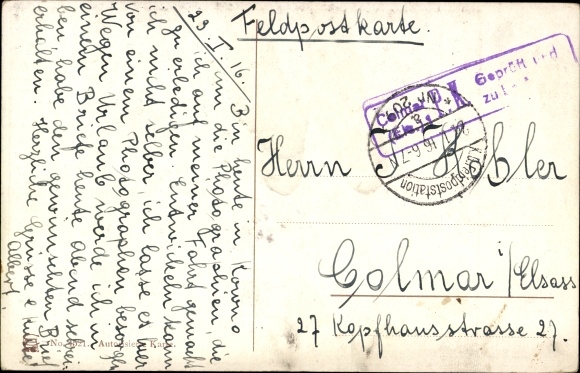 Feldpostkarte.
29. I. 16. Bin heute in Kowno
um die Photographien, die
ich auf meiner Fahrt gemacht
zu erledigen. Entwickeln kann
ich nicht selber ich lasse es
von einem Photographen besorgen
Wegen Urlaub werde ich in
einem Briefe heute abend schrei-
ben habe den gewünschten Brief
erhalten. Herzliche Grüsse & Küsse
Albert.
Colmar
Geprüft und
zu
Feldpoststation
Herrn A. Ebler
Colmar / Elsass
27 Kopfhausstrasse 27.